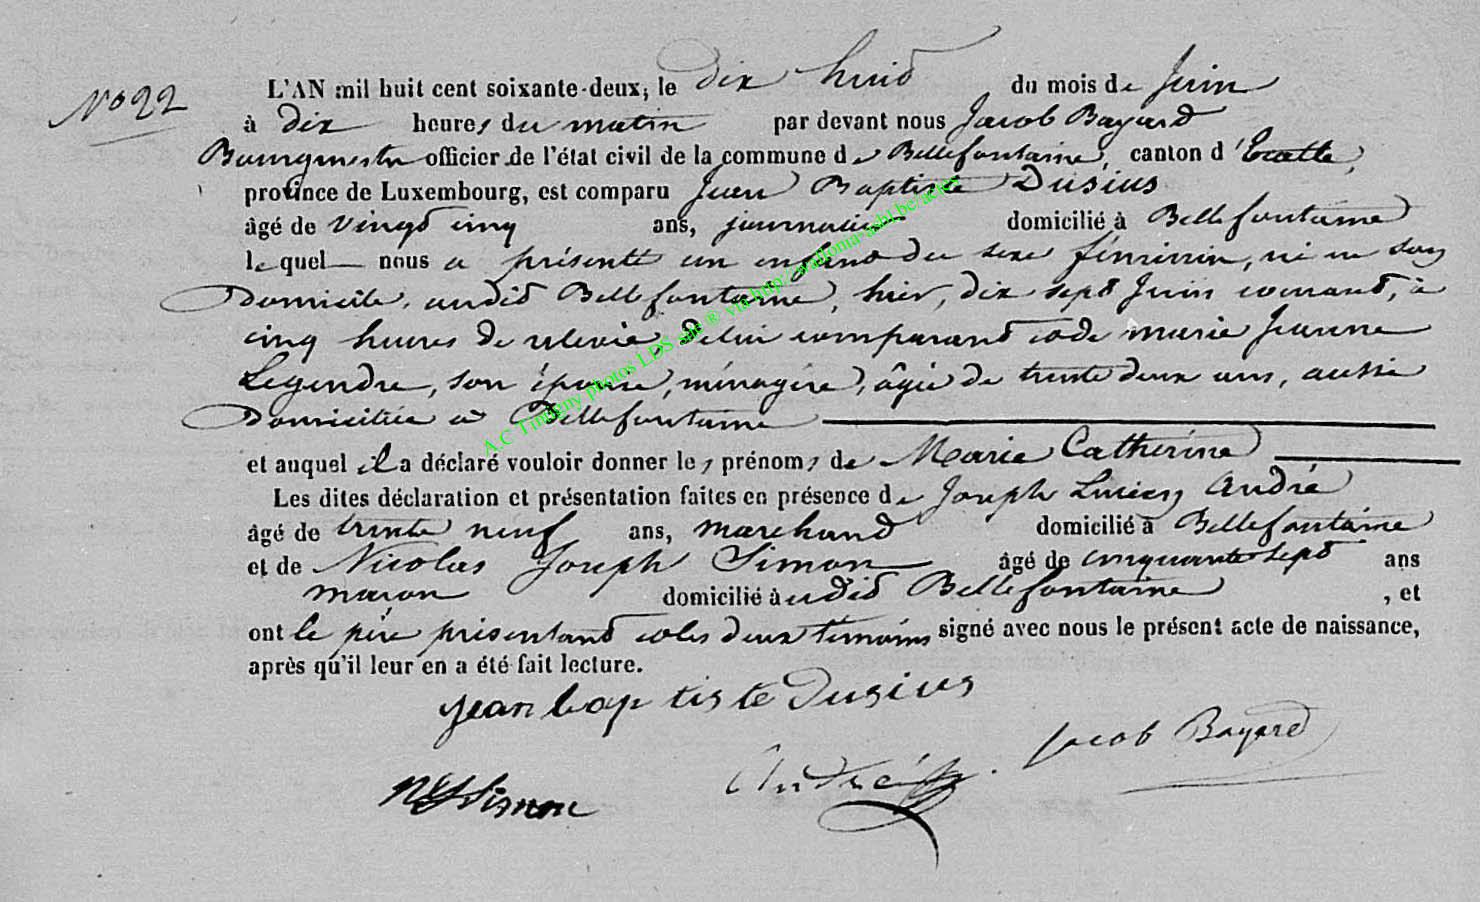 No 22
L'AN mil huit cent soixante-deux, le dix huit du mois de Juin
à dix heures du matin par devant nous Jacob Bayard
Bourgmestre officier de l'état civil de la commune de Bellefontaine, canton d'Etalle,
province de Luxembourg, est comparu Jean Baptiste Dusius
âgé de vingt cinq ans, journalier domicilié à Bellefontaine
lequel nous a présenté un enfant du sexe féminin, né en son
Domicile, audit Bellefontaine, hier, dix sept Juin courant, à
cinq heures de relevée, de lui comparant et de marie Jeanne
Legendre, son épouse, ménagère, âgée de trente deux ans, aussi
Domiciliée à Bellefontaine
et auquel il a déclaré vouloir donner les prénoms de Marie Catherine
Les dites déclaration et présentation faites en présence de Joseph Lucien André
âgé de trente neuf ans, marchand domicilié à Bellefontaine
et de Nicolas Joseph Simon âgé de cinquante sept ans
maçon domicilié audit Bellefontaine, et
ont le père présentant et les deux témoins signé avec nous le présent acte de naissance,
après qu'il leur en a été fait lecture.
jean baptiste Dusius
Jacob Bayard
André
NJ Simon
A.C Tintigny photos LDS site ® via http://wallonia-asbl.be/actes